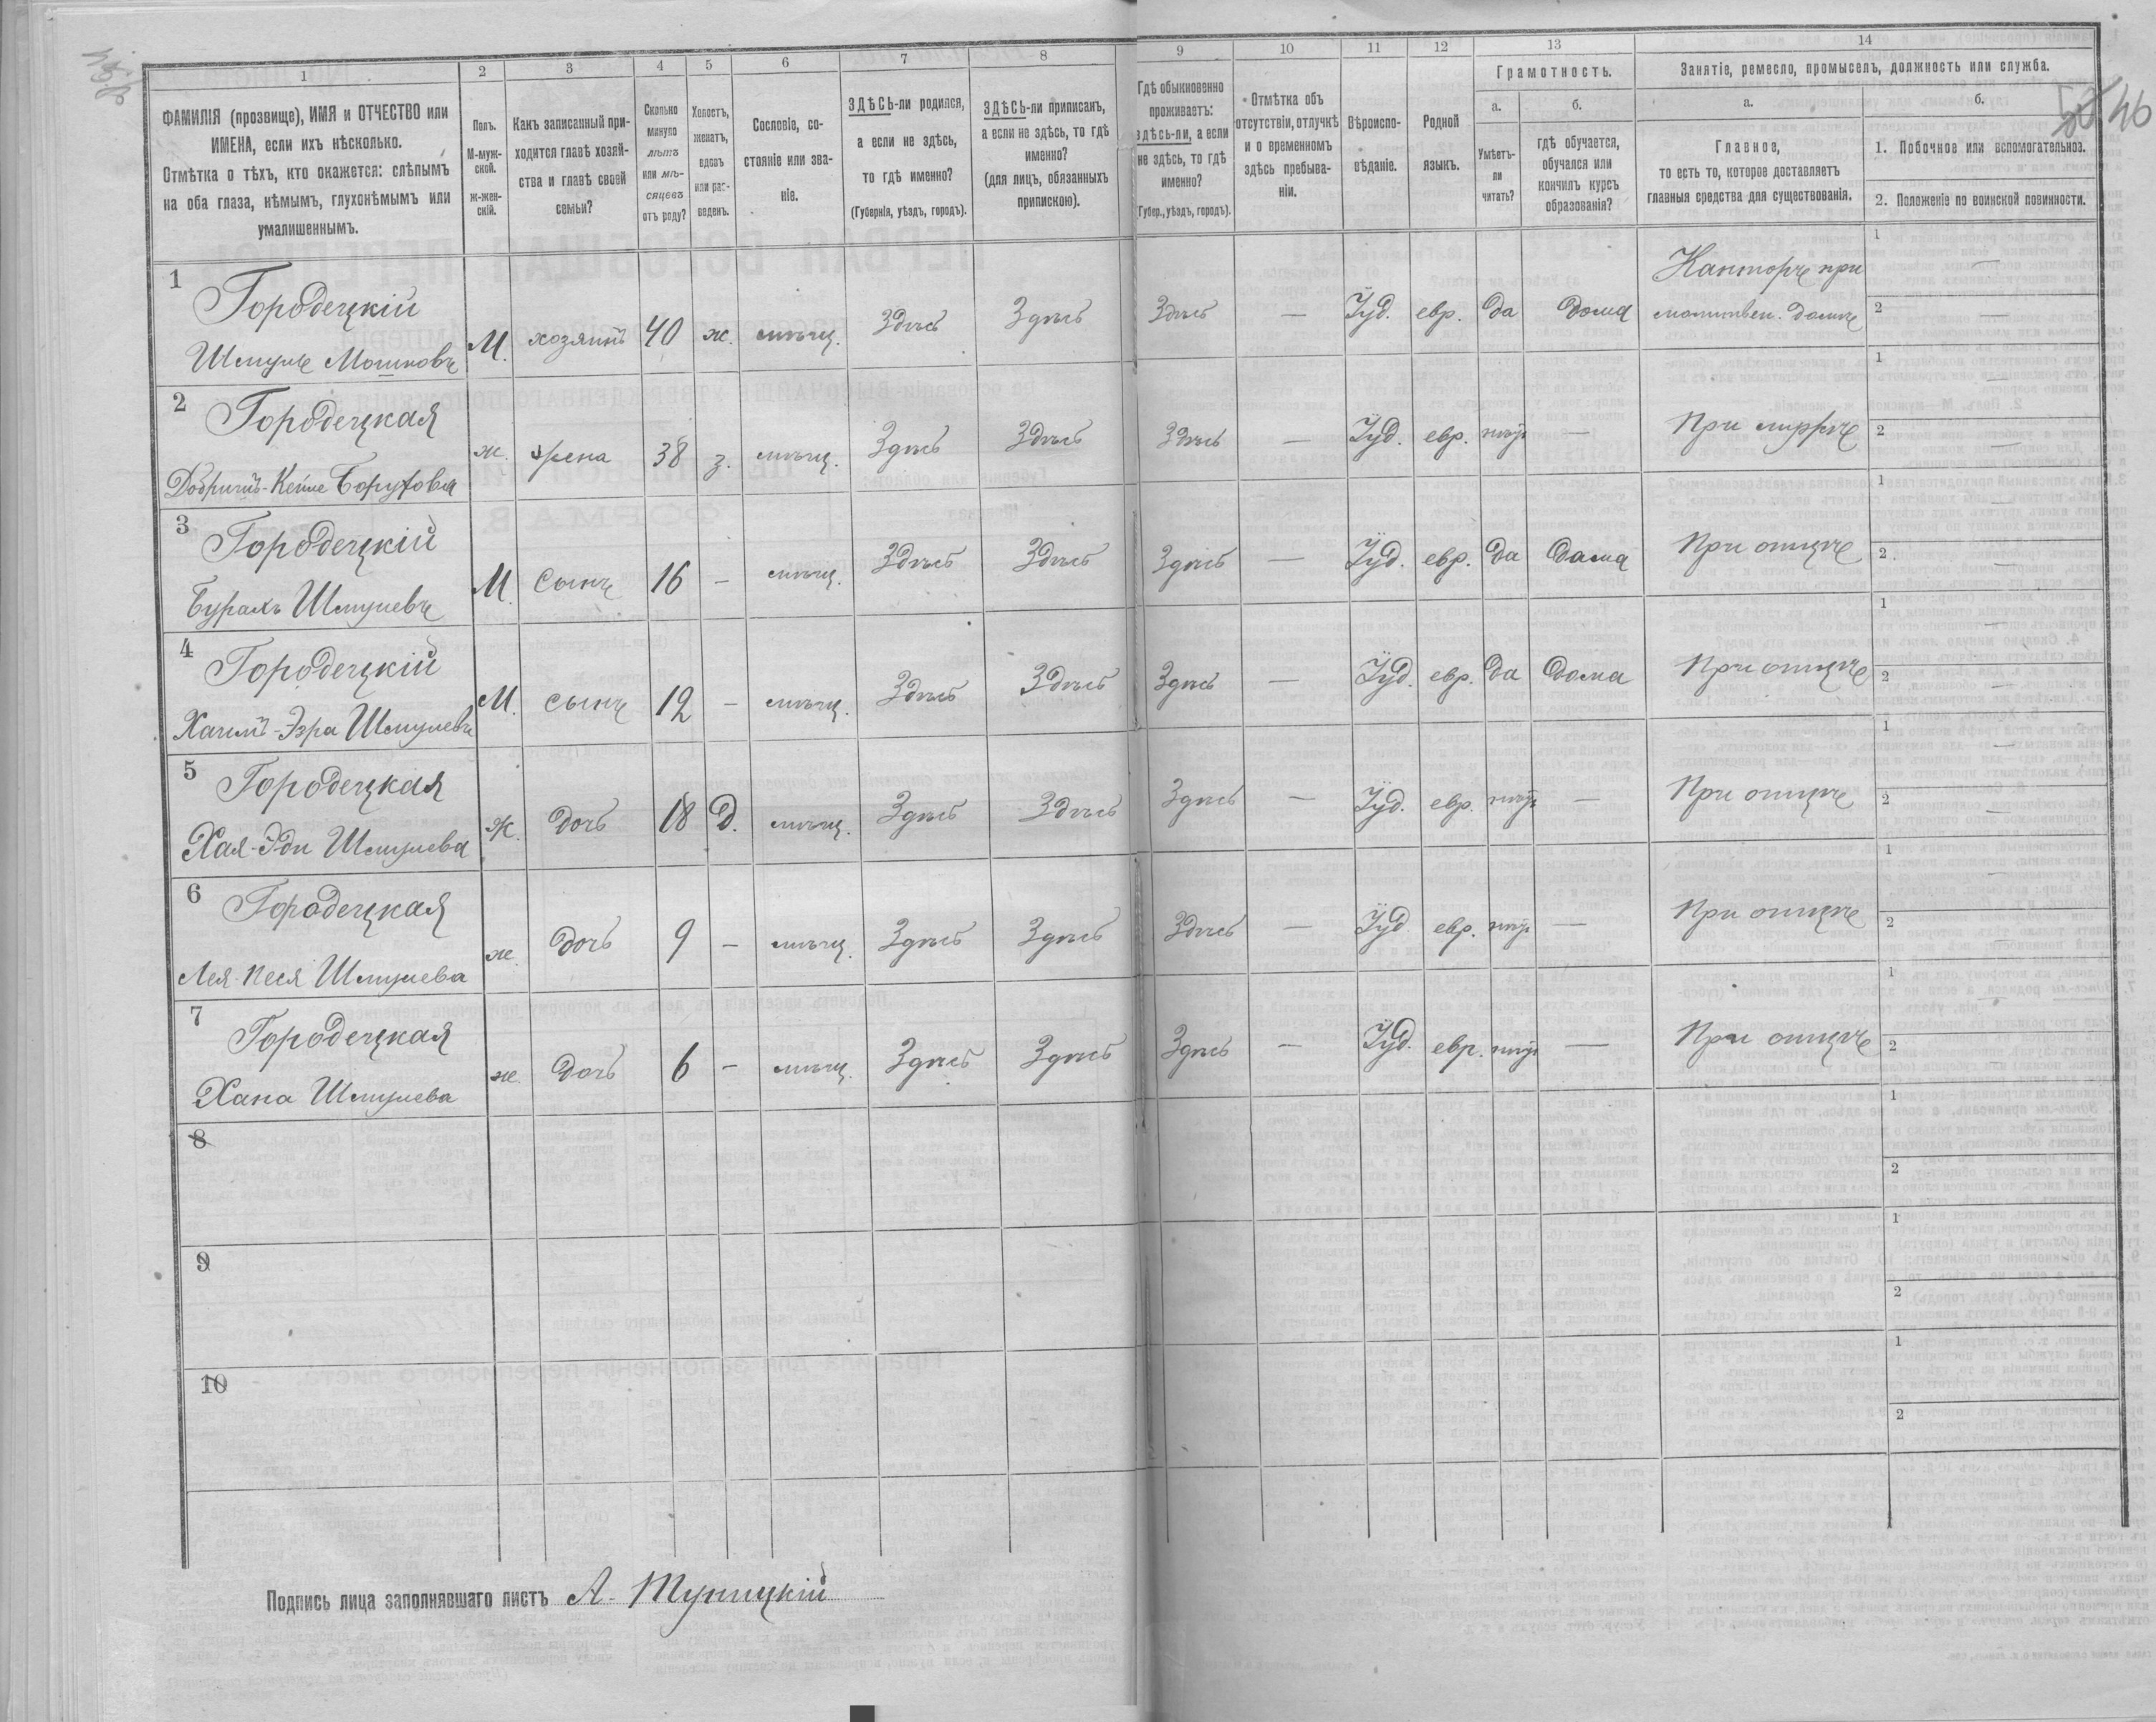 1 2 3 4 5 6 7 8 9 10 11 12 13 14
ФАМИЛІЯ (прозвище), ИМЯ и ОТЧЕСТВО или
ИМЕНА, если ихъ нѣсколько.
Отмѣтка о тѣхъ, кто окажется: слѣпымъ
на оба глаза, нѣмымъ, глухонѣмымъ или
умалишеннымъ.
Полъ.
М-муж-
ской.
Ж-жен-
скій.
Какъ записанный при-
ходится главѣ хозяй-
ства и главѣ своей
семьи?
Сколько
минуло
лѣтъ
или мѣ-
сяцевъ
отъ роду?
Холостъ,
женатъ,
вдовъ
или раз-
веденъ.
Сословіе, со-
стояніе или зва-
ніе.
ЗДѢСЬ-ли родился,
а если не здѣсь,
то гдѣ именно?
(Губернія, уѣздъ, городъ).
ЗДѢСЬ-ли приписанъ,
а если не здѣсь, то гдѣ
именно?
(для лицъ, обязанныхъ
припискою).
Гдѣ обыкновенно
проживаетъ:
здѣсь-ли, а если
не здѣсь, то гдѣ
именно?
(Губер., уѣздъ, городъ).
Отмѣтка объ
отсутствіи, отлучкѣ
и о временномъ
здѣсь пребыва-
ніи.
Вѣроиспо-
вѣданіе.
Родной
языкъ.
Грамотность.
а. б.
Умѣетъ-
ли
читать?
гдѣ обучается,
обучался или
кончилъ курсъ
образованія?
Занятіе, ремесло, промыселъ, должность или служба.
а. б.
Главное,
то есть то, которое доставляетъ
главныя средства для существованія.
1. Побочное или вспомогательное.
2. Положеніе по воинской повинности.
46
1
Городецкій
Шмуль Мошковъ
М. хозяинъ 40 ж. мѣщ. Здѣсь Здѣсь Здѣсь — Іуд. евр. Да Дома
Канторъ при
молитвен. домѣ
1 —
2 —
2
Городецкая
Кейле Боруховна
ж. жена 38 з. мѣщ. Здѣсь Здѣсь Здѣсь — Іуд. евр. нѣтъ — При мужѣ
1 —
2 —
3
Городецкій
Бурахъ Шмулевъ
М. Сынъ 16 — мѣщ. Здѣсь Здѣсь Здѣсь — Іуд. евр. Да Дома При отцѣ
1 —
2 —
4
Городецкій
Хаимъ-Эзра Шмулевъ
М. сынъ 12 — мѣщ. Здѣсь Здѣсь Здѣсь — Іуд. евр. Да Дома При отцѣ
1 —
2 —
5
Городецкая
Хая-Эди Шмулева
Ж. Дочь 18 Д. мѣщ. Здѣсь Здѣсь Здѣсь — Іуд. евр. нѣтъ — При отцѣ
1 —
2 —
6
Городецкая
Лея-Песя Шмулева
ж. Дочь 9 — мѣщ. Здѣсь Здѣсь Здѣсь — Іуд евр. нѣтъ — При отцѣ
1 —
2 —
7
Городецкая
Хана Шмулева
ж. Дочь 6 — мѣщ. Здѣсь Здѣсь Здѣсь — Іуд. евр. нѣтъ — При отцѣ
1 —
2 —
8
1
2
9
1
2
10
1
2
Подпись лица заполнявшаго листъ А. Туницкій